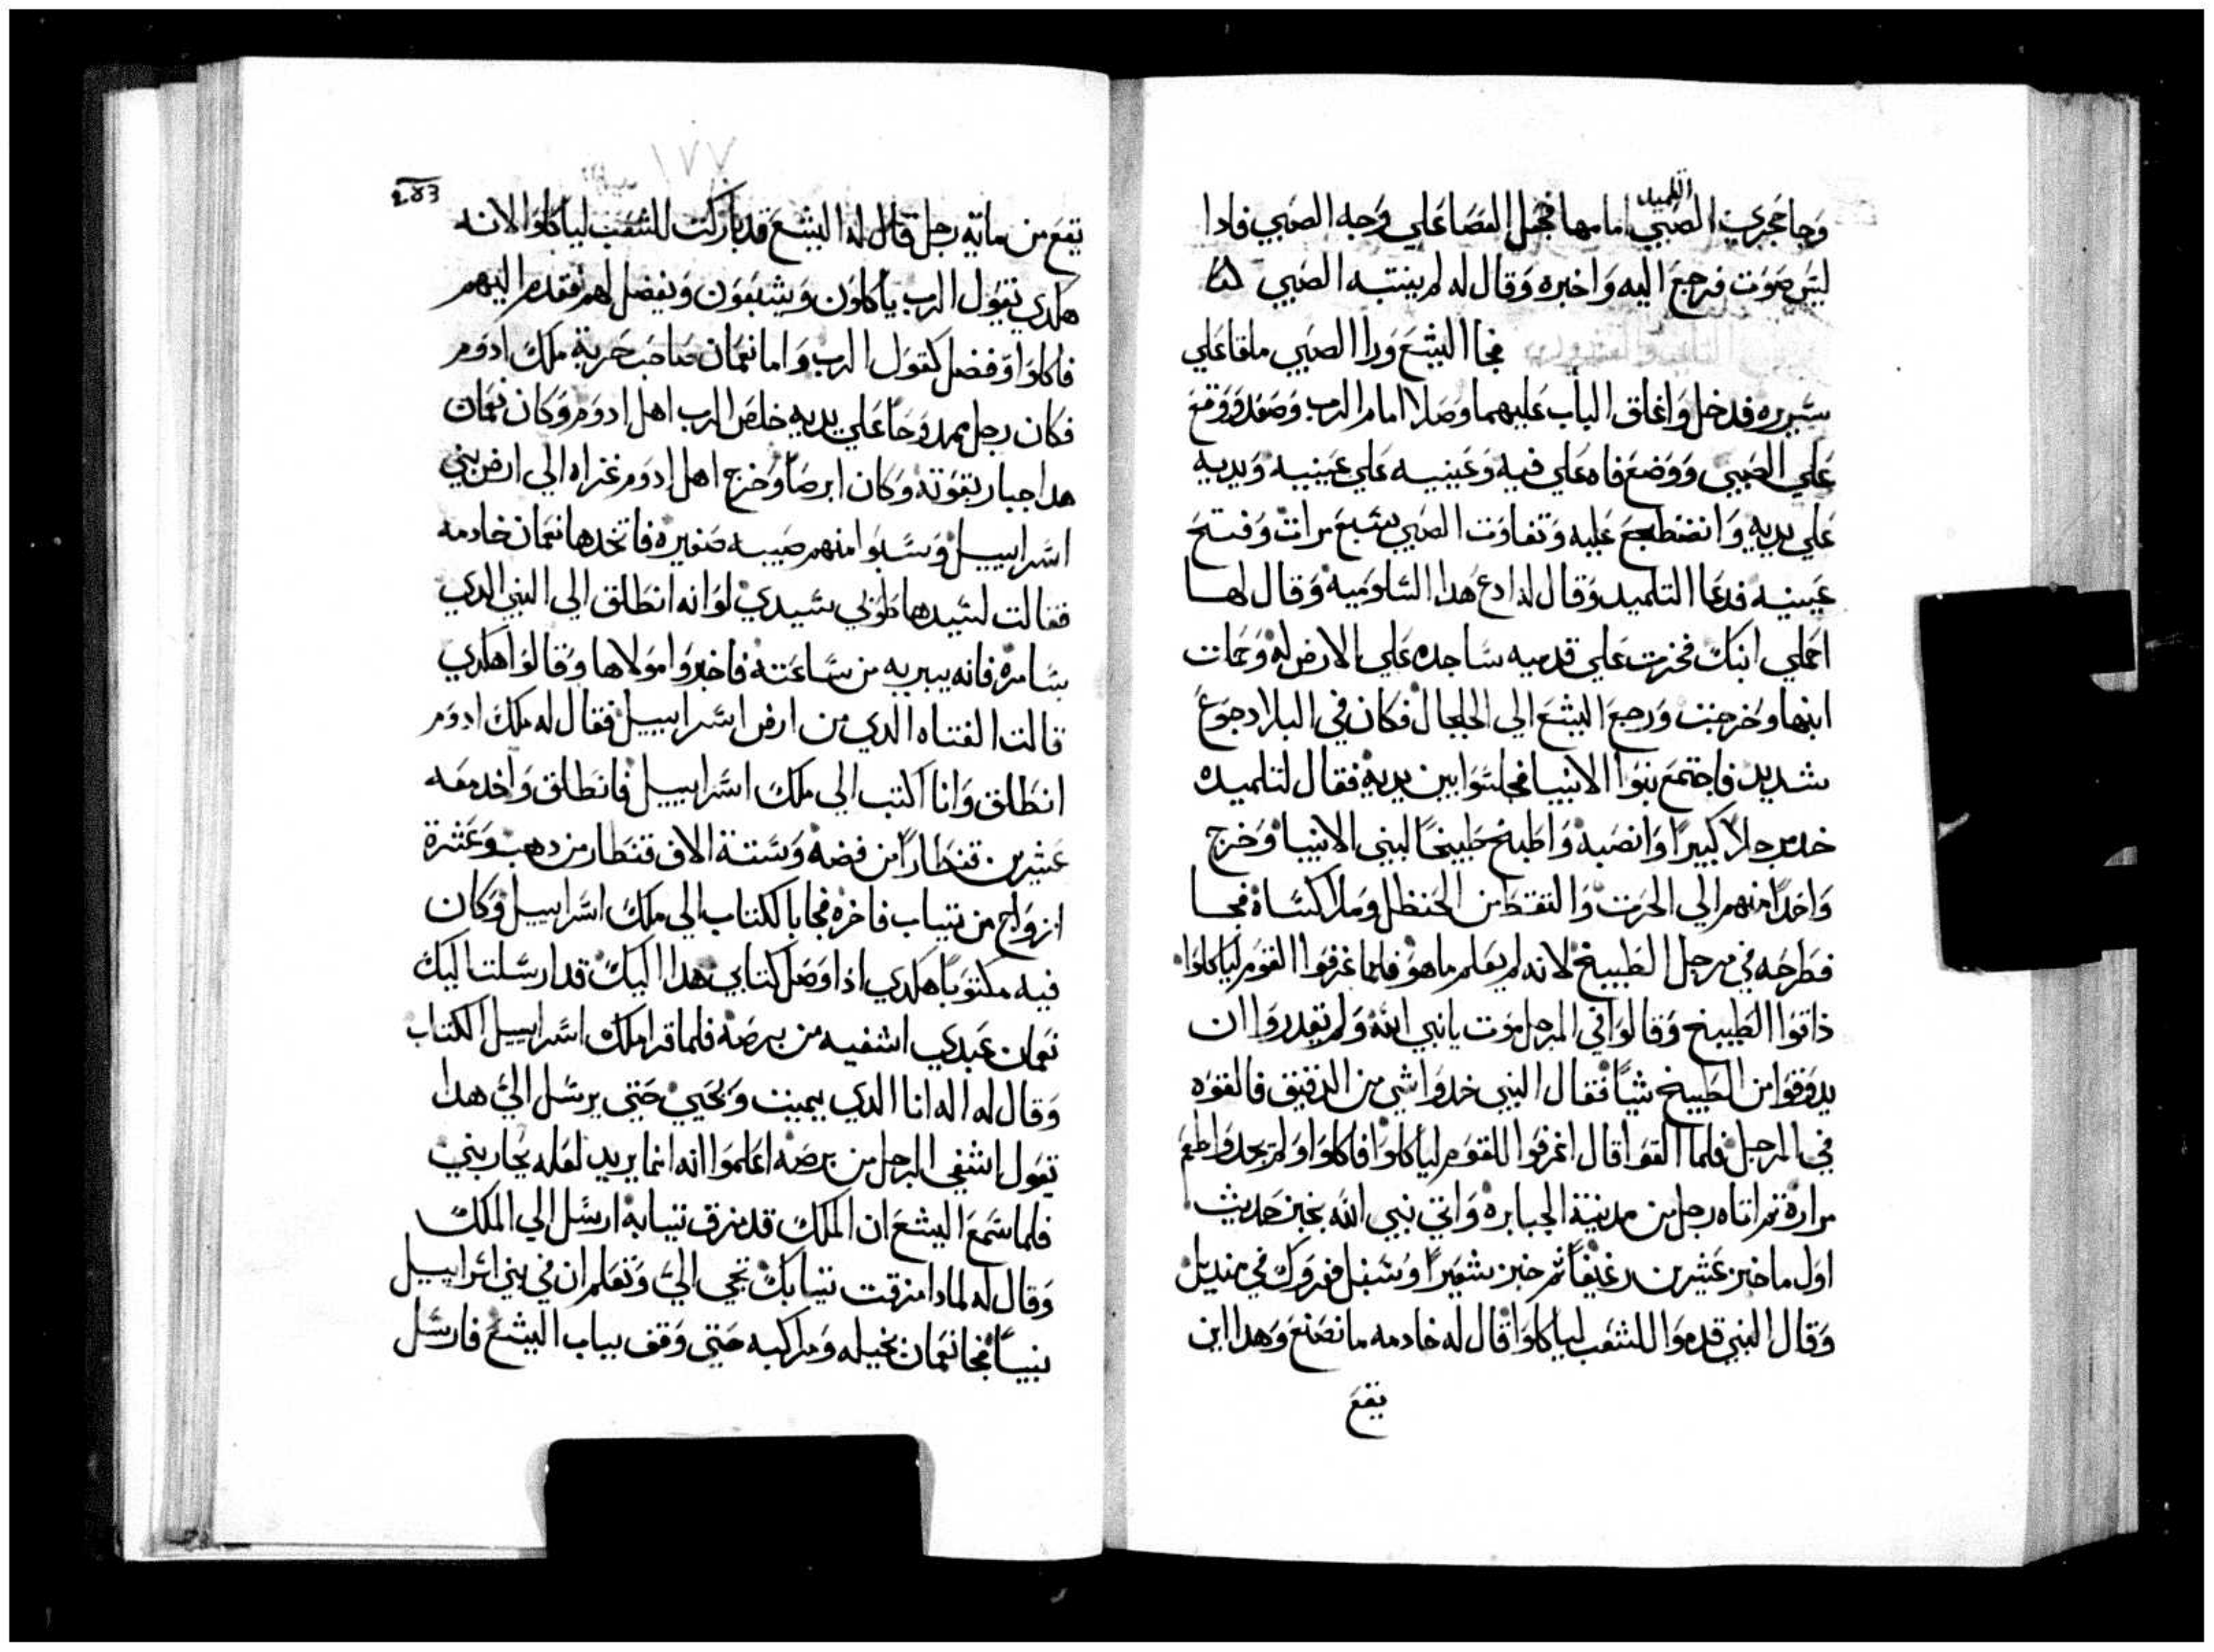 التلميد
وجا حجري الصبي امامها فجعل العصا علي وجه الصبي فادا
ليس صوت فرجع اليه واخبره وقال له لم ينتبه الصبي
فجا اليشع ورا الصبي ملقا علي
سريره فدخل واغلق الباب عليهما وصلا امام الرب وصعد ووقع
علي الصبي ووضع فاه علي فيه وعينيه علي عينيه ويديه
علي يديه وانضطجع عليه وتفاوت الصبي سبع مرات وفتح
عينيه فدعا التلميد وقال له ادع هدا الشلوميه وقال لها
احملي ابنك فخرت علي قدميه ساجده علي الارض له وحملت
ابنها وخرجت ورجع اليشع الي الجلجال فكان في البلاد جوع
شديد فاجتمع بنوا الانبيا فجلسوا بين يديه فقال لتلميده
خد مرجلاً كبيراً وانصبه واطبخ طبيخاً لبني الانبيا وخرج
واحداً منهم الي الحرث والتقط من الحنظل وملا كساه فجا
فطرحه في مرجل الطبيخ لانه لم يعلم ما هو فلما غرفوا القوم لياكلوا
داقوا الطبيخ وقالوا في المرجل موت يا نبي الله ولم يقدروا ان
يدوقوا من الطبيخ شياً فقال النبي خدوا شي من الدقيق فالقوه
في المرجل فلما القوا قال اغرفوا للقوم لياكلوا فاكلوا ولم يجدوا طعم
مراره تم اتاه رجل من مدينة الجبابره واتي نبي الله بخبز حديث
اول ما خبز عشرين رغيفاً تم خبز شعيراً وسنبل فورك في منديل
وقال النبي قدموا للشعب لياكلوا قال له خادمه ما نصنع وهدا اين
يقع
١٧٧
يقع من ماية رجل قال له اليشع قد باركت للشعب لياكلوا لانه
هكدي يقول الرب ياكلون ويشبعون ويفضل لهم فقدم اليهم
فاكلوا وفضل كقول الرب واما نعمان صاحب حربة ملك ادوم
فكان رجل ممدوحاً علي يديه خلص الرب اهل ادوم وكان نعمان
هدا جبار بقوته وكان ابرصاً وخرج اهل ادوم غزاه الي ارض بني
اسراييل وسبوا منهم صبيه صغيره فاتخدها نعمان خادمه
فقالت لسيدها طوبي سيدي لو انه انطلق الي النبي الدي
بسامره فانه يبريه من ساعته فاخبروا مولاها وقالوا هكدي
قالت الفتاه الدي من ارض اسراييل فقال له ملك ادوم
انطلق وانا اكتب الي ملك اسراييل فانطلق واخد معه
عشرين قنطاراً من فضه وستة الاف قنطار من دهب وعشرة
ازواج من تياب فاخره فجا بالكتاب الي ملك اسراييل وكان
فيه مكتوباً هكدي ادا وصل كتابي هدا اليك قد ارسلت اليك
نعمان عبدي اشفيه من برصه فلما قرا ملك اسراييل الكتاب
وقال له اله انا الدي يميت ويحيي حتي يرسل الي هدا
يقول اشفي الرجل من برصه اعلموا انه انما يريد لعله يحاربني
فلما سمع اليشع ان الملك قد مزق تيابه ارسل الي الملك
وقال له لمادا مزقت تيابك تجي الي وتعلم ان في بني اسراييل
نبياً فجا نعمان بخيله ومراكبه حتي وقف بباب اليشع فارسل